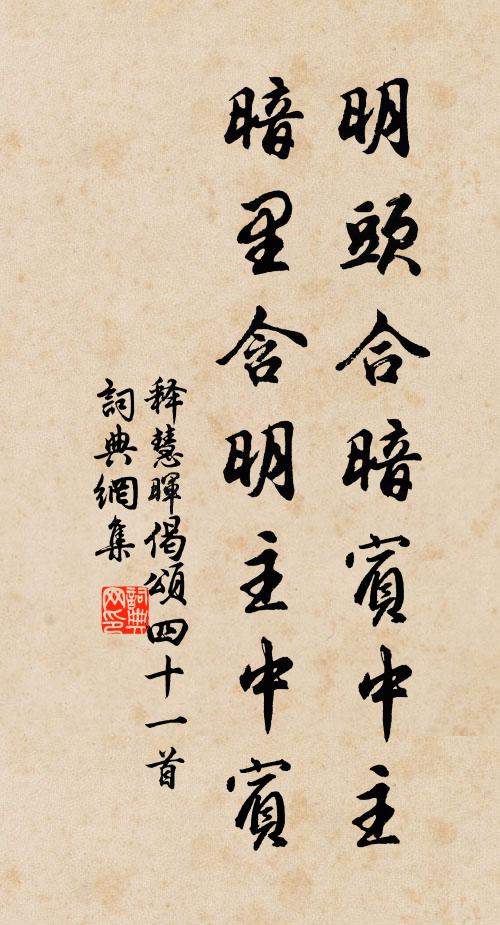 明頭合暗賓中主
暗里含明主中賓
释慧暉偈頌四十一首
詞典網集
詞典网印